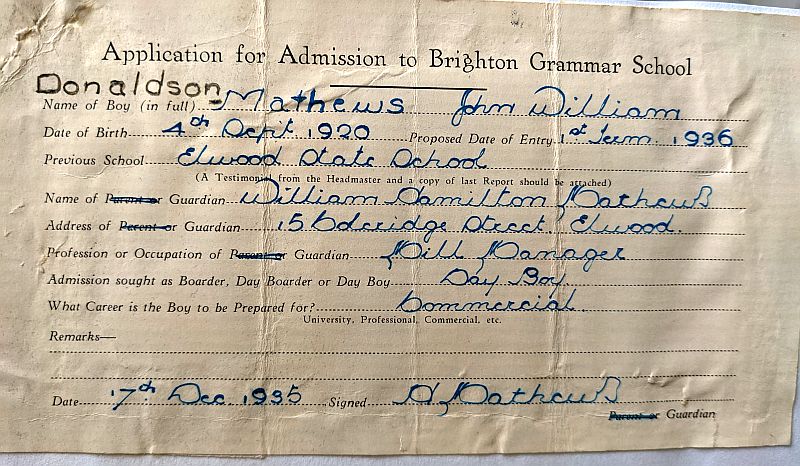 Application for Admission to Brighton Grammar School
Donaldson-
Name of Boy (in full) Mathews John William
Date of Birth 4th Sept 1920 Proposed Date of Entry 1st Term 1936
Previous School Elwood State School
(A Testimonial from the Headmaster and a copy of last Report should be attached)
Name of Parent or Guardian William Hamilton Mathews
Address of Parent or Guardian 15 Street, Elwood.
Profession or Occupation of Parent or Guardian Mill Manager
Admission sought as Boarder, Day Boarder or Day Boy Day Boy
What Career is the Boy to be Prepared for? Commercial
University, Professional, Commercial, etc.
Remarks—
Date 17th Dec. 1935 Signed Mathews
Parent or Guardian